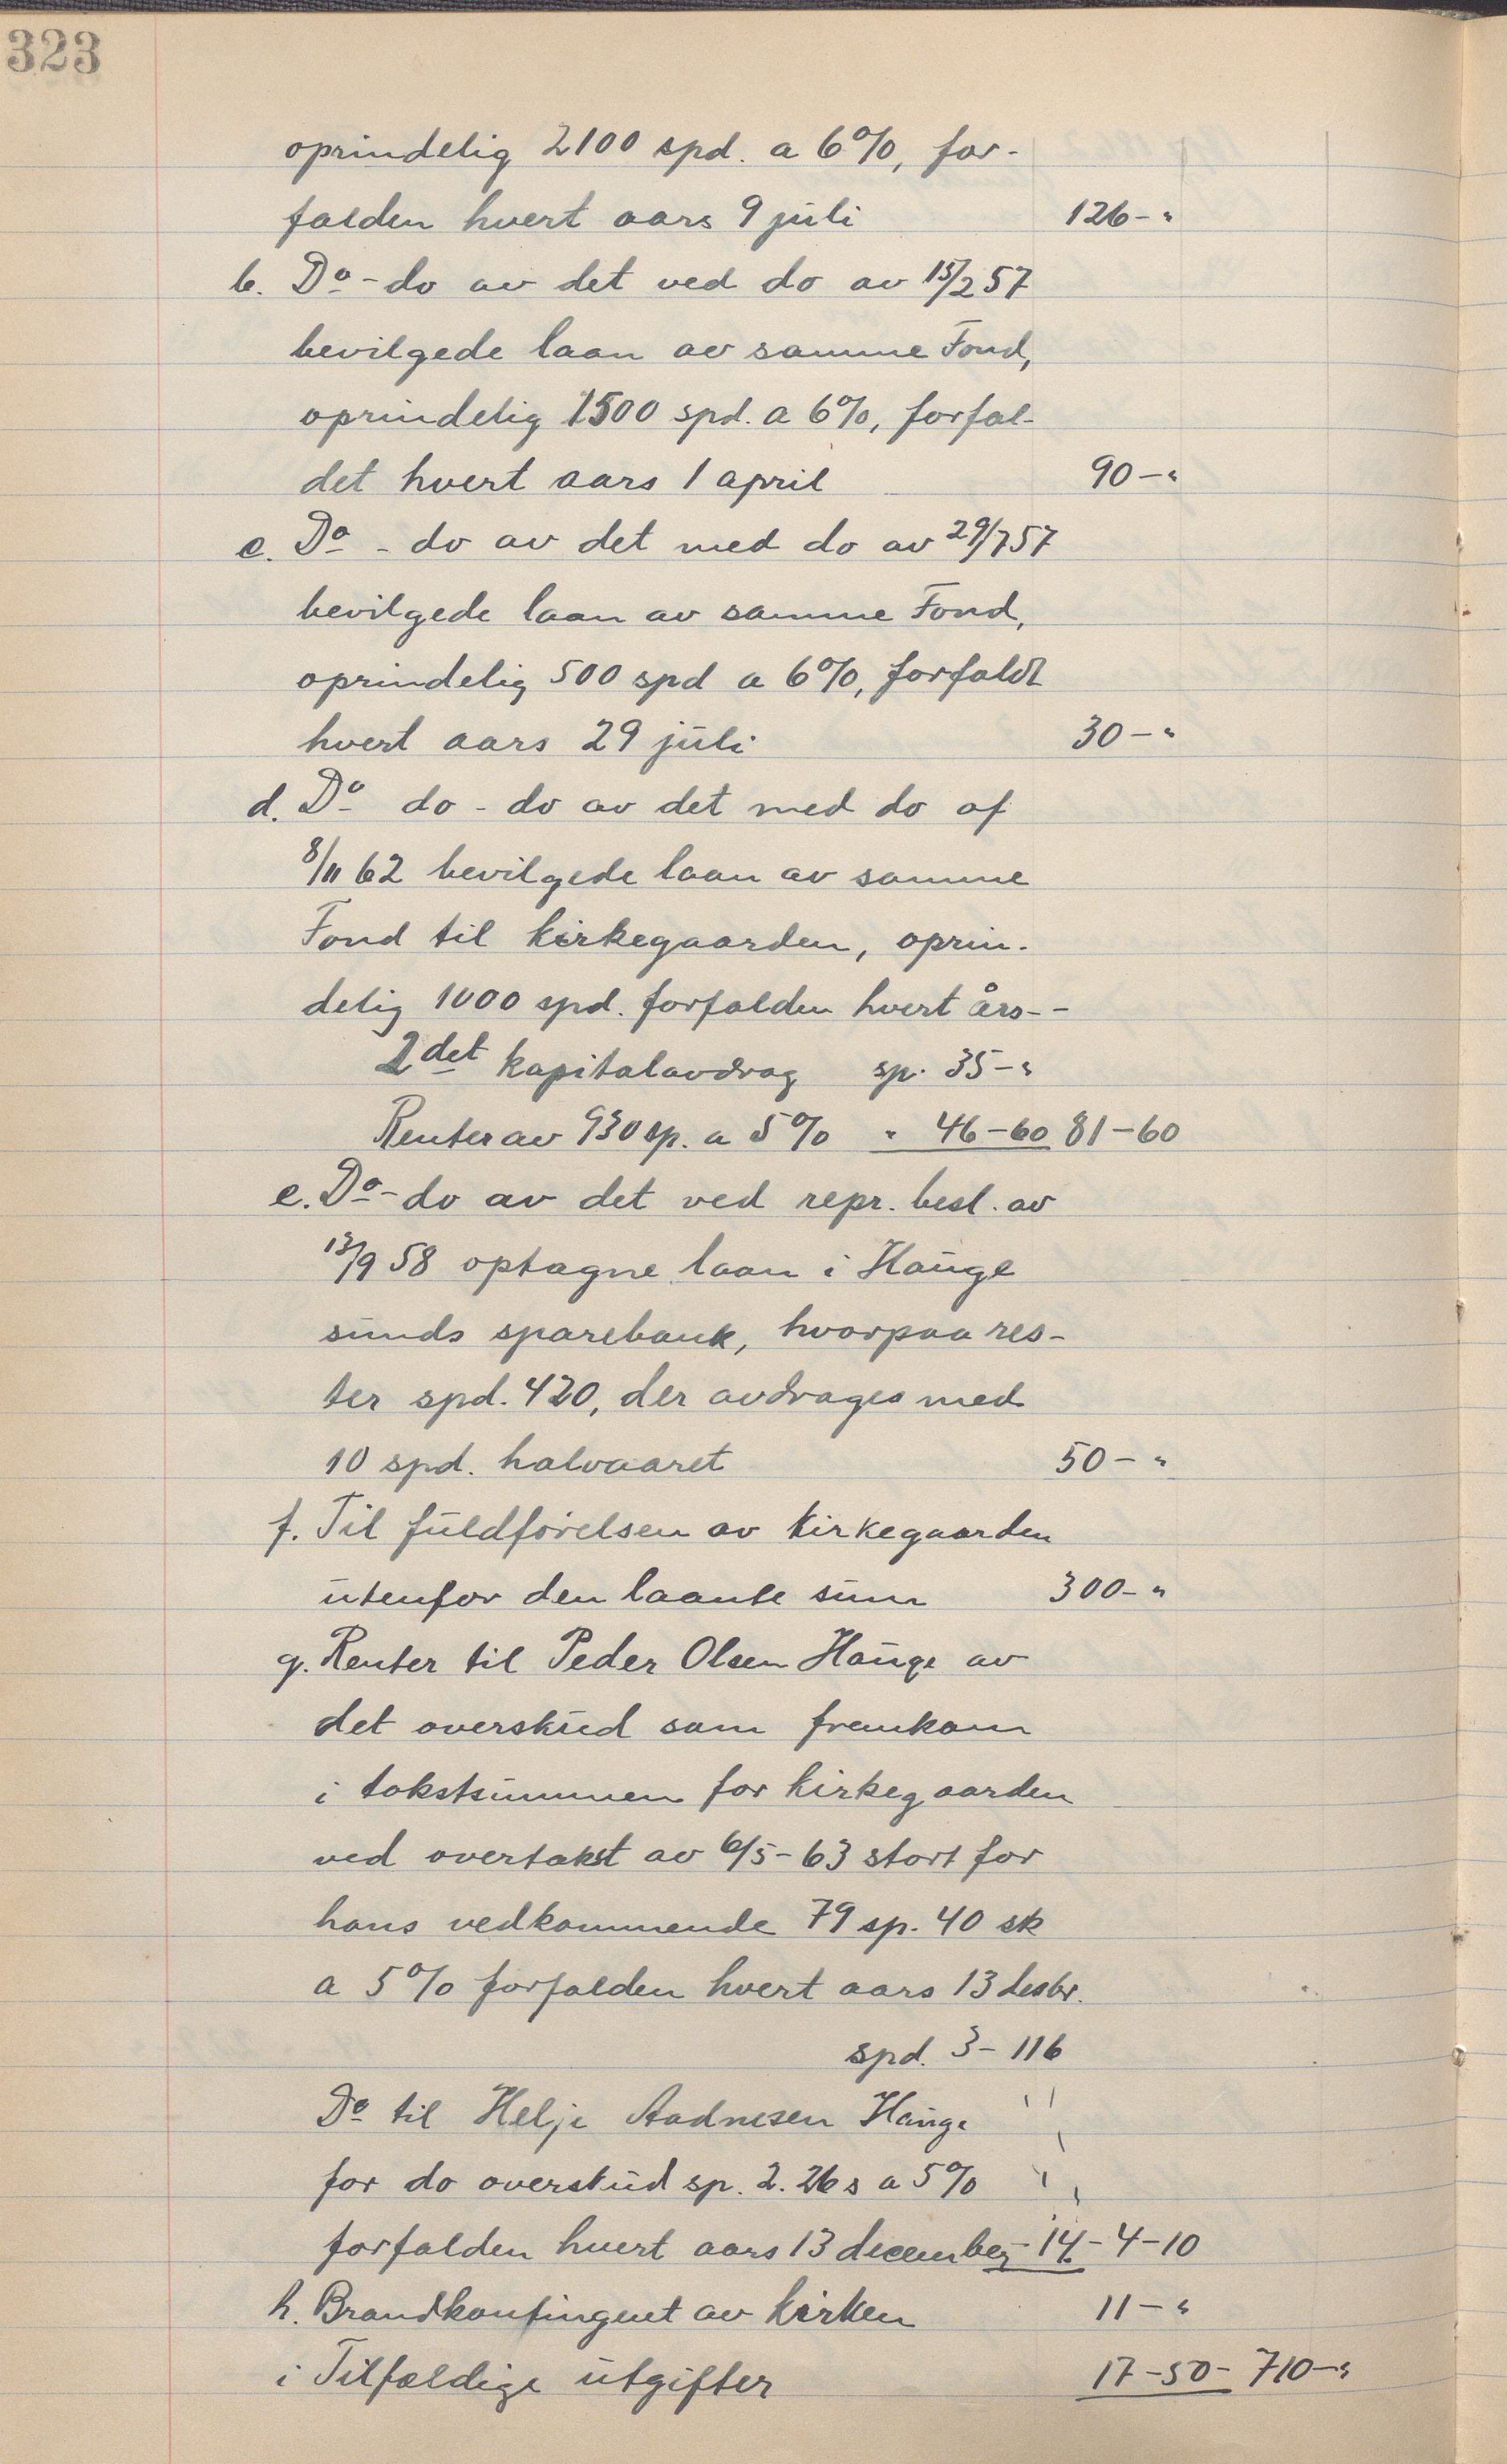 323
oprindelig 2100 spd. a 6%, for-
falden hvert aars 9 juli 126-"
b. Do - do av det ved do av 15/2 57
bevilgede laan av samme Fond,
oprindelig 1500 spd. a 6%, forfal-
det hvert aars 1 april 90-"
c. Do - do av det med do av 29/7 57
bevilgede laan av samme Fond,
oprindelig 500 spd a 6%, forfaldt
hvert aars 29 juli 30-"
d. Do do - do av det med do af
8/11 62 bevilgede laan av samme
Fond til kirkegaarden, oprin-
delig 1000 spd. forfalden hvert års--
2det kapitalavdrag sp. 35-"
Renter av 930 sp. a 5% " 46-60 81-60
e. Do - do av det ved repr. besl. av
13/9 58 optagne laan i Hauge
sunds sparebank, hvorpaa res-
ter spd. 420, der avdrages med
10 spd. halvaaret 50-"
f. Til fuldførelsen av kirkegaarden
utenfor den laante sum 300-"
g. Renter til Peder Olsen Hauge av
det overskud som fremkom
i takstsummen for kirkegaarden
ved overtakst av 6/5-63 stort for
hans vedkommende 79 sp. 40 sk
a 5% forfalden hvert aars 13 desbr.
spd. 3-116
Do til Helje Aadnesen Hauge
for do overskud sp. 2. 26 s a 5%
forfalden hvert aars 13 december - 14 - 4-10
h. Brandkontingent av kirken 11-"
i Tilfældige utgifter 17-50- 710-"